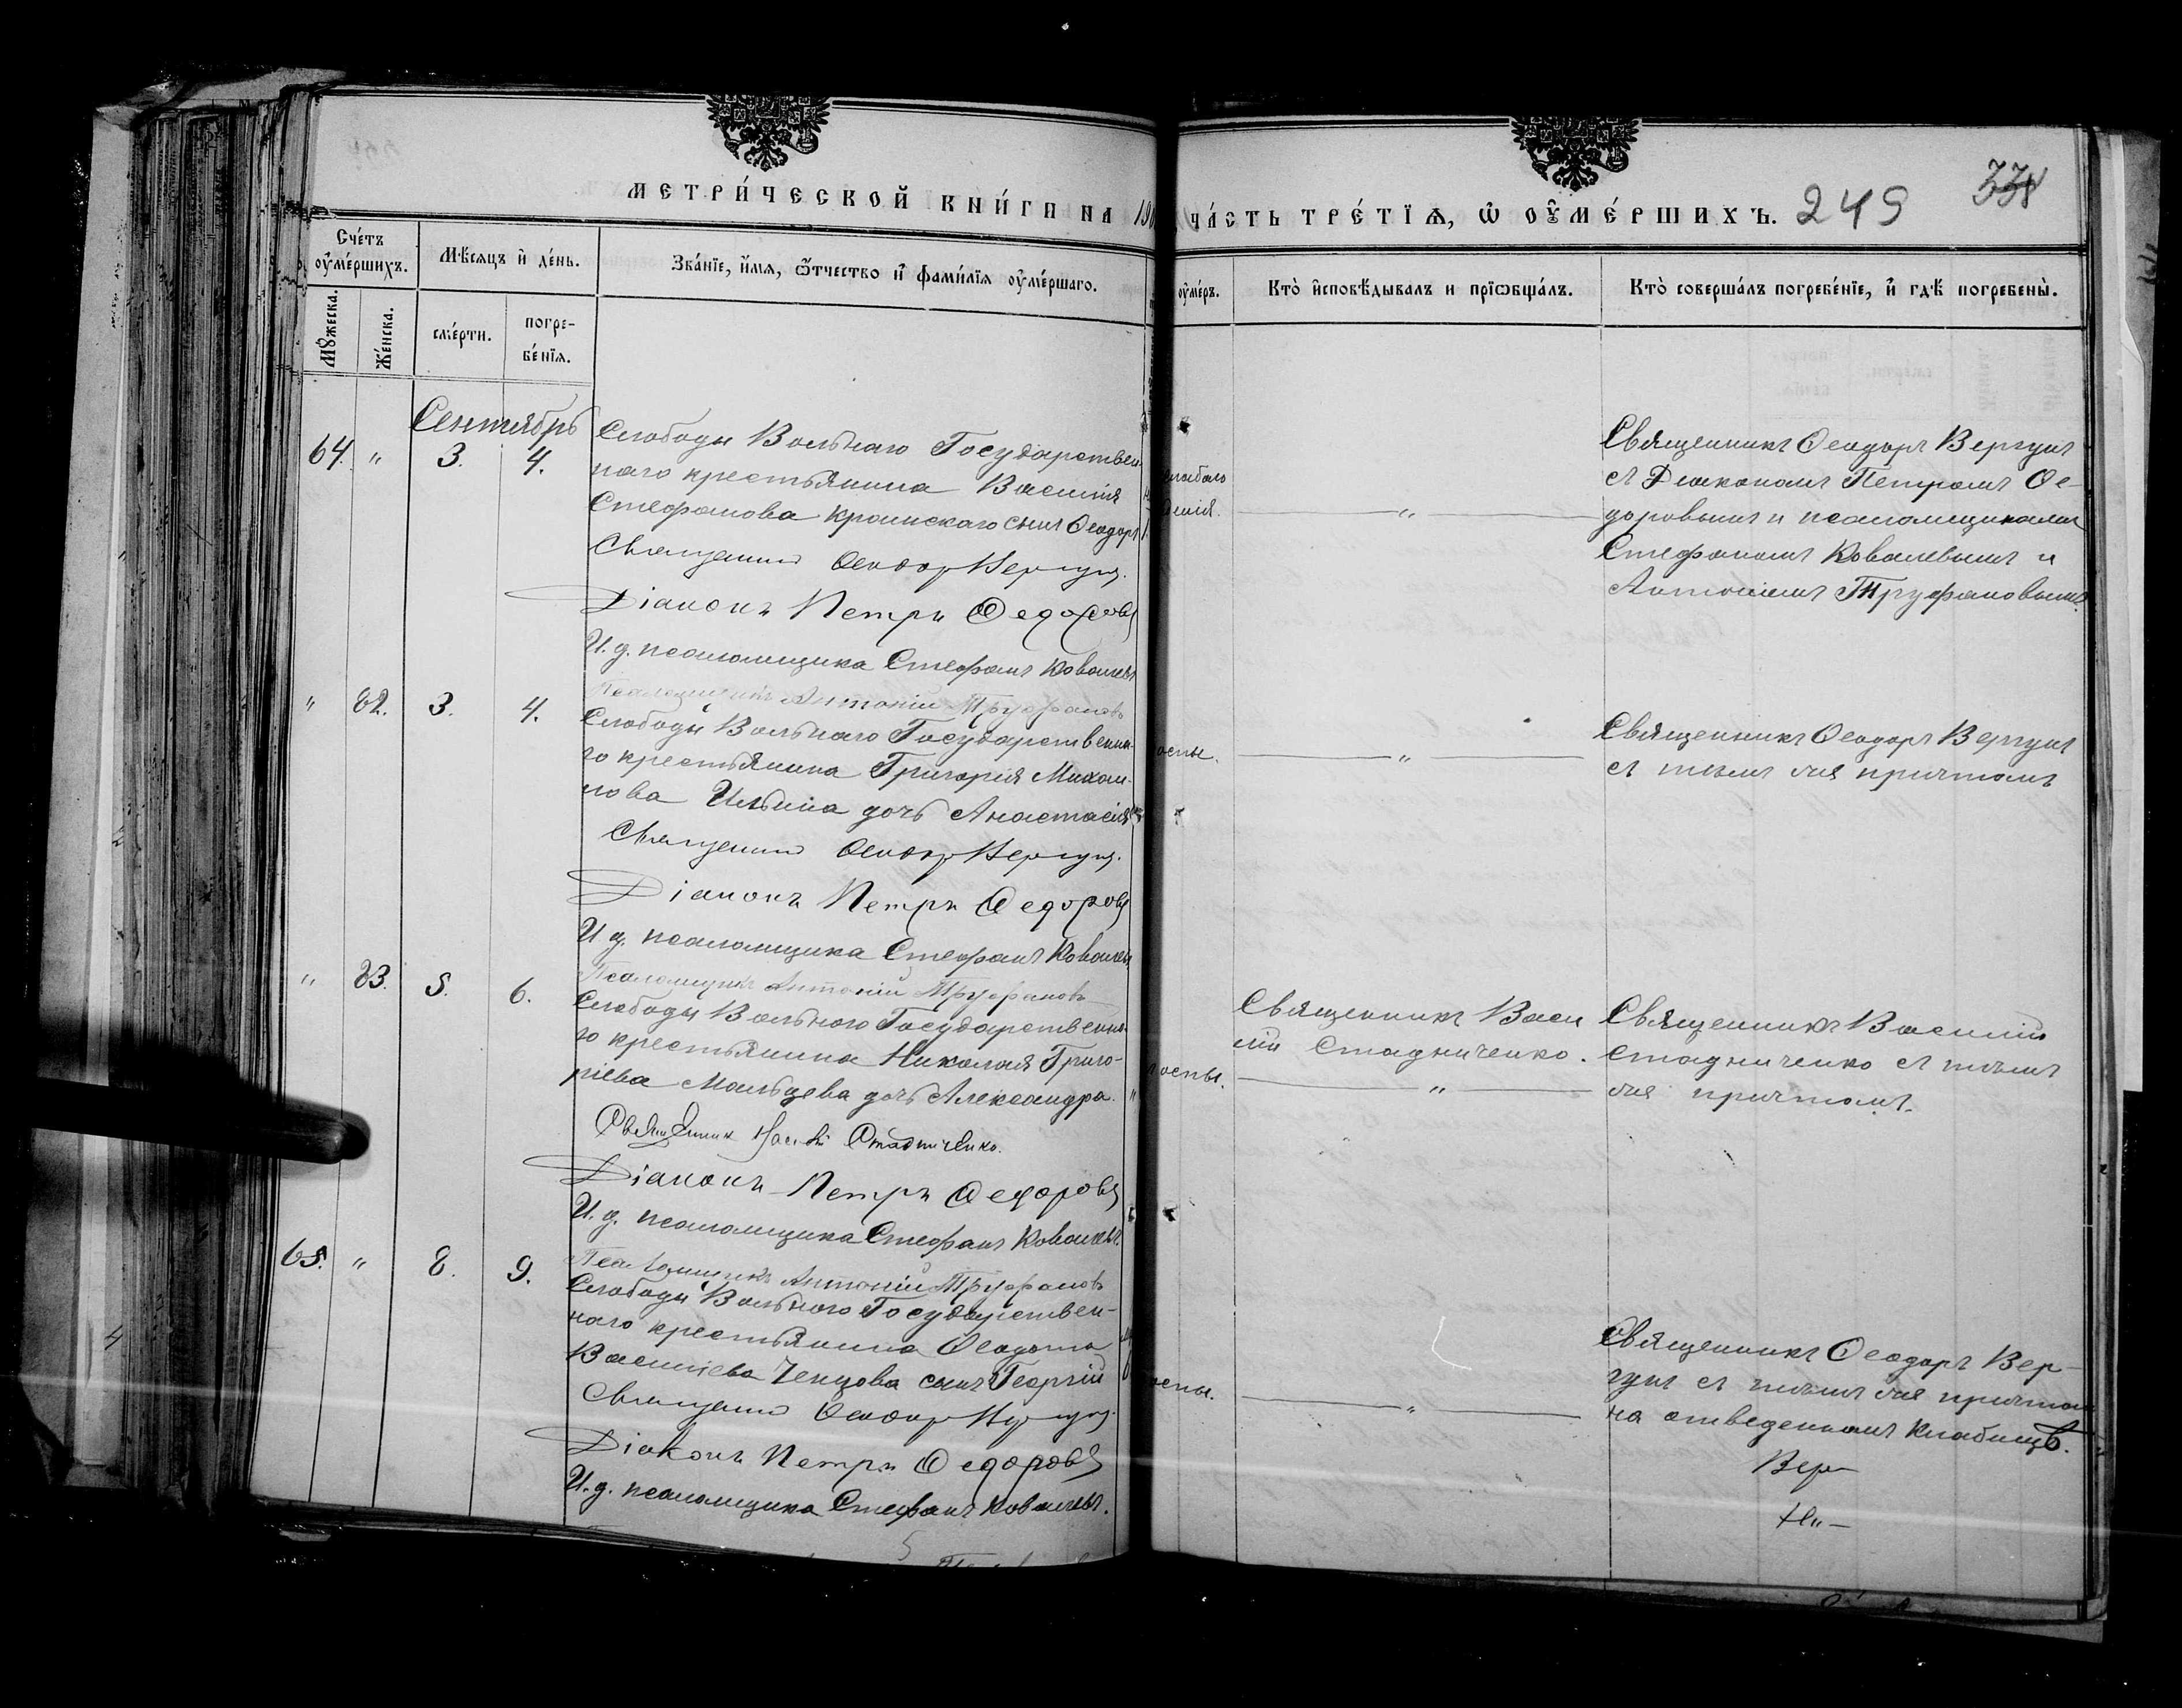 МЕТРИ́ЧЕСКОЙ КНИ́ГИ НА 190
ЧА́СТЬ ТРЕ́ТЇѦ, Ѿ ОУ҆МЕ́РШИХЪ. 249
Сче́тъ оу҆ме́ршихъ.
Мꙋ́жеска.
Же́нска.
Мѣ́сѧцъ и҆ де́нь.
сме́рти.
погре-
бе́нїѧ.
Зва́нїе, и҆́мѧ, ѻ҆́тчество и҆ фами́лїѧ оу҆ме́ршаго.
оу҆ме́ръ.
Кто̀ и҆сповѣ́дывалъ и прїѡбща́лъ.
Кто̀ соверша́лъ погребе́нїе, и҆ гдѣ̀ погребены̀.
Сентябрь
64. " 3. 4.
Слободы Вольнаго Государствен-
наго крестьянина Василія
Стефанова Краинскаго сынъ Ѳеодоръ
Священникъ Ѳеодоръ Вергунъ.
Діаконъ Петръ Ѳедоровъ
И. д. псаломщика Стефанъ Ковалевъ
Псаломщикъ Антоній Труфановъ
слабаго
"
Священникъ Ѳеодоръ Вергунъ
съ Діакономъ Петромъ Ѳе-
доровымъ и псаломщиками
Стефаномъ Ковалевымъ и
Антоніемъ Труфановымъ.
" 82. 3. 4.
Слободы Вольнаго Государственна-
го крестьянина Григорія Михаи-
лова Ильина дочь Анастасія
Священникъ Ѳеодоръ Вергунъ.
Діаконъ Петръ Ѳедоровъ
И. д. псаломщика Стефанъ Ковалевъ
Псаломщикъ Антоній Труфановъ
оспы.
"
Священникъ Ѳеодоръ Вергунъ
съ тѣмъ же причтомъ
" 83. 5. 6.
Слободы Вольного Государственна-
го крестьянина Николая Григо-
ріева Мальцева дочь Александра.
Священник Василій Стадниченко.
Діаконъ Петръ Ѳедоровъ
И. д. псаломщика Стефанъ Ковалевъ.
Псаломщикъ Антоній Труфановъ
оспы.
Священникъ Васи
лій Стадниченко.
"
Священникъ Василій
Стадниченко съ тѣмъ
же причтомъ.
65. " 8. 9.
Слободы Вольного Государствен-
наго крестьянина Ѳеодота
Василіева Ченцова сынъ Георгій
Священникъ Ѳеодоръ Вергунъ.
Діаконъ Петръ Ѳедоровъ
И. д. псаломщика Стефанъ Ковалевъ.
оспы.
"
Священникъ Ѳеодоръ Вер-
гунъ съ тѣмъ же причтом
на отведенномъ кладбищѣ.
Вер-